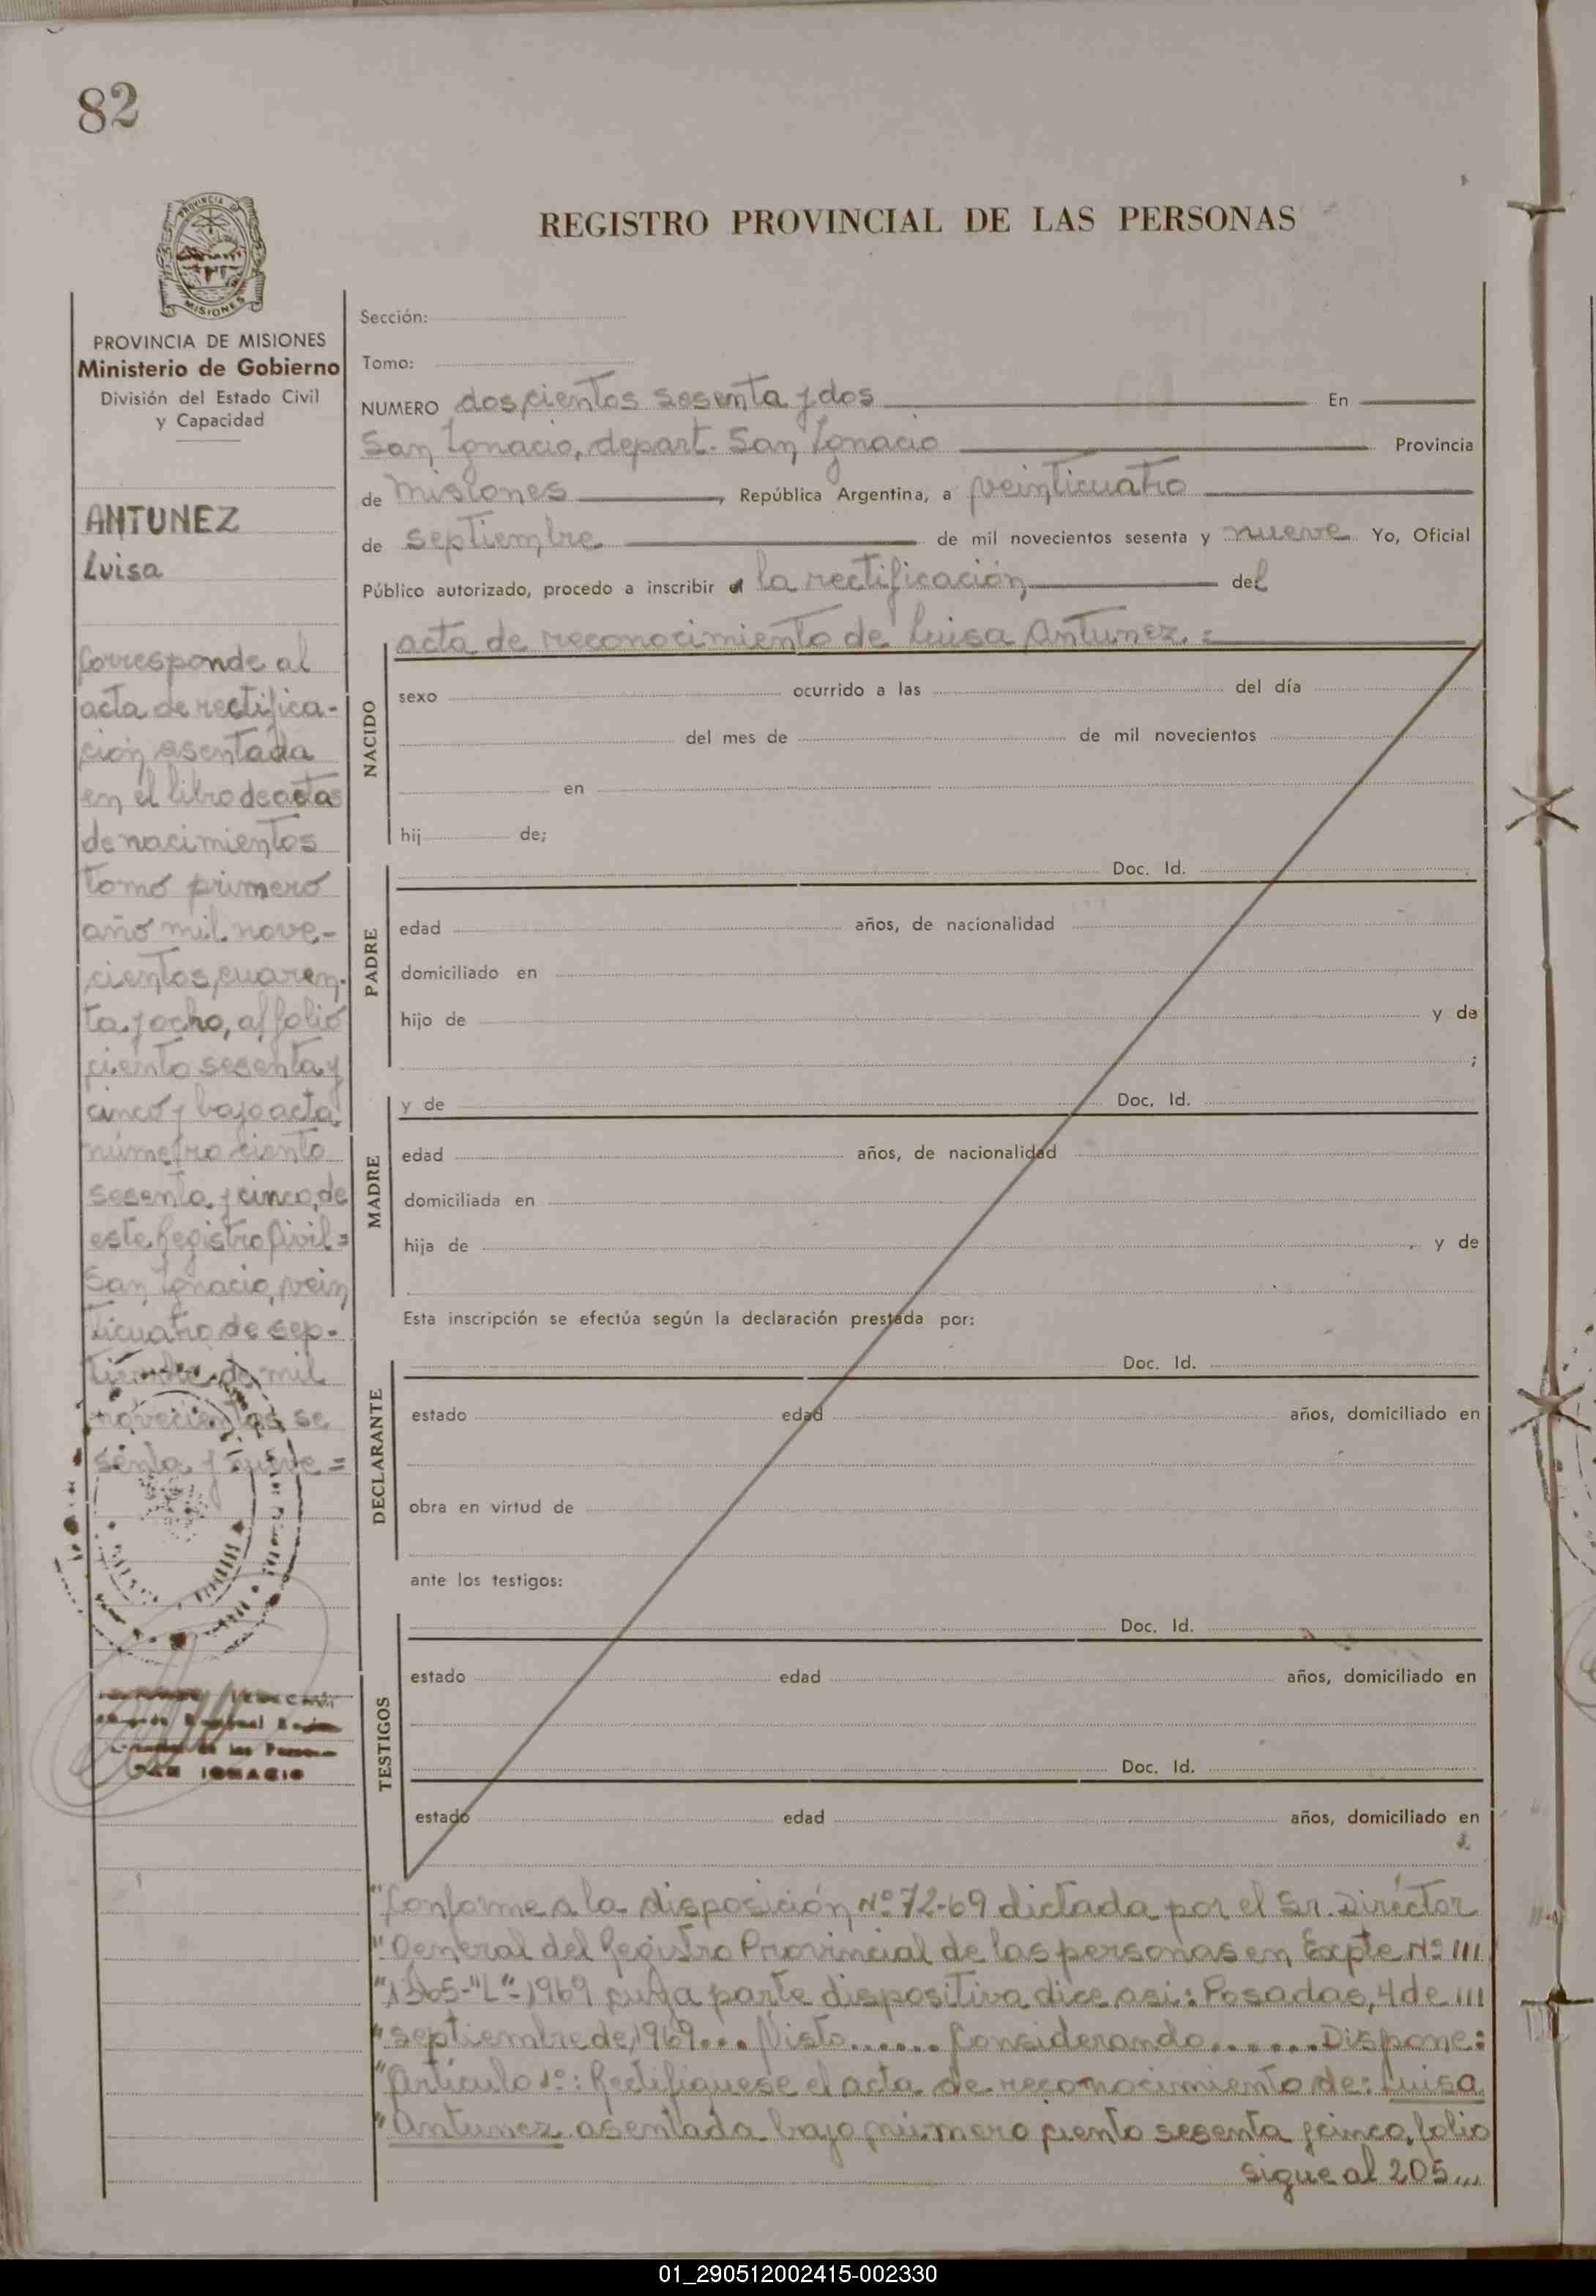 82
REGISTRO PROVINCIAL DE LAS PERSONAS
PROVINCIA DE MISIONES
Ministerio de Gobierno
División del Estado Civil
y Capacidad
ANTUNEZ
Luisa
Corresponde al
acta de rectifica-
ción asentada
en el libro de actas
de nacimientos
tomo primero
año mil nove-
cientos cuaren-
ta y ocho, al folio
ciento sesenta y
cinco y bajo acta
número ciento
sesenta y cinco, de
este Registro Civil =
San Ignacio, vein
ticuatro de sep-
tiembre de mil
novecientos se
senta y nueve =
SAN IGNACIO
Sección:
Tomo:
NUMERO doscientos sesenta y dos En
San Ignacio, depart. San Ignacio Provincia
de Misiones, República Argentina, a veinticuatro
de septiembre de mil novecientos sesenta y nueve Yo, Oficial
Público autorizado, procedo a inscribir la rectificación del
acta de reconocimiento de Luisa Antunez. =
NACIDO
sexo ocurrido a las del día
del mes de de mil novecientos
en
hij de;
PADRE
Doc. Id.
edad años, de nacionalidad
domiciliado en
hijo de y de
;
MADRE
y de Doc. Id.
edad años, de nacionalidad
domiciliada en
hija de y de
Esta inscripción se efectúa según la declaración prestada por:
DECLARANTE
Doc. Id.
estado edad años, domiciliado en
obra en virtud de
ante los testigos:
TESTIGOS
Doc. Id.
estado edad años, domiciliado en
Doc. Id.
estado edad años, domiciliado en
"Conforme a la disposición Nº 72-69 dictada por el Sr. Diréctor
"General del Registro Provincial de las personas en Expte Nº III
"-"L"-1969 cuya parte dispositiva dice asi: Posadas, 4 de III
"septiembre de 1969... Visto...... Considerando....... Dispone:
"Artículo 1º: Rectifiquese el acta de reconocimiento de: Luisa
"Antunez asentada bajo número ciento sesenta y cinco, folio
sigue al 205...
01_290512002415-002330